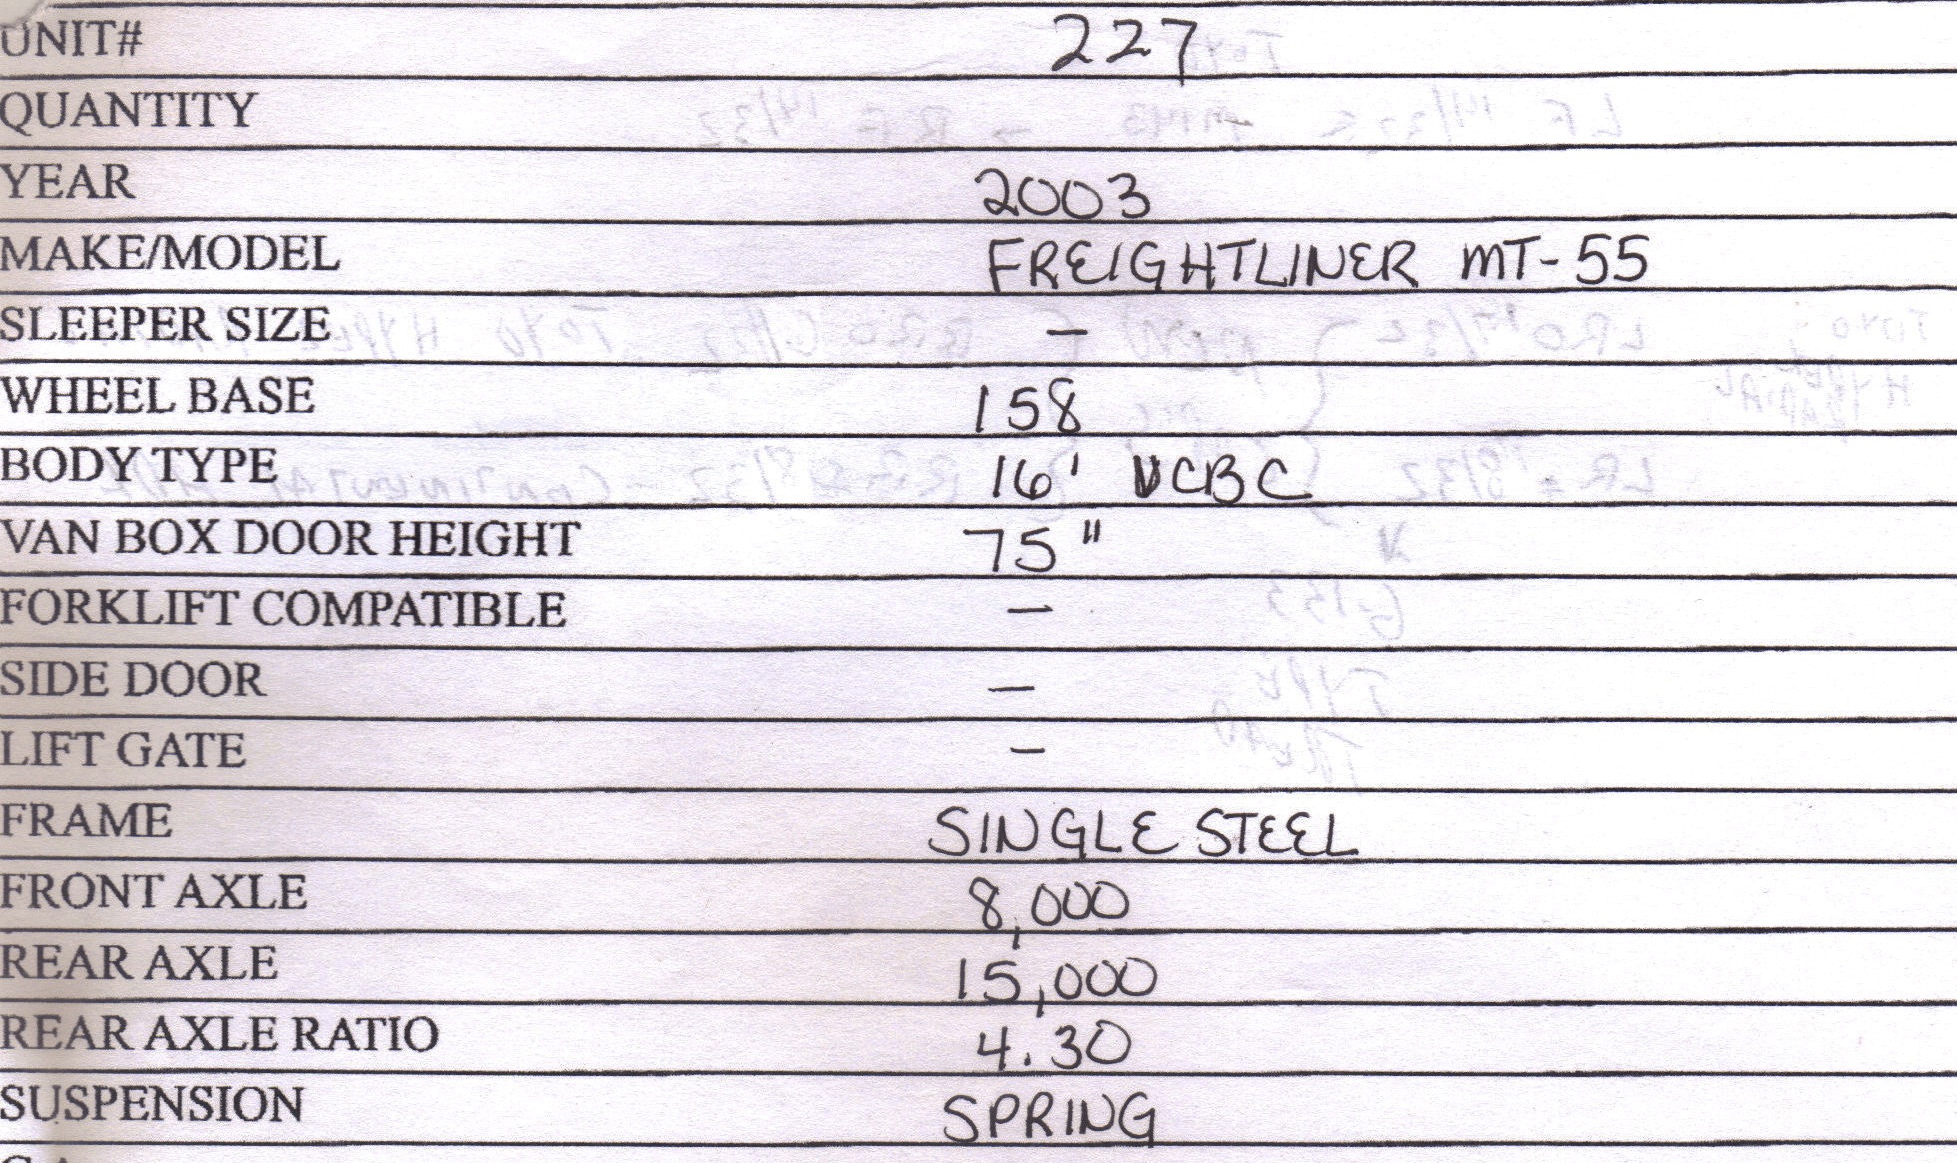 UNIT# 227
QUANTITY
YEAR 2003
MAKE/MODEL FREIGHTLINER MT-55
SLEEPER SIZE –
WHEEL BASE 158
BODY TYPE 16' VCBC
VAN BOX DOOR HEIGHT 75"
FORKLIFT COMPATIBLE –
SIDE DOOR –
LIFT GATE –
FRAME SINGLE STEEL
FRONT AXLE 8,000
REAR AXLE 15,000
REAR AXLE RATIO 4.30
SUSPENSION SPRING